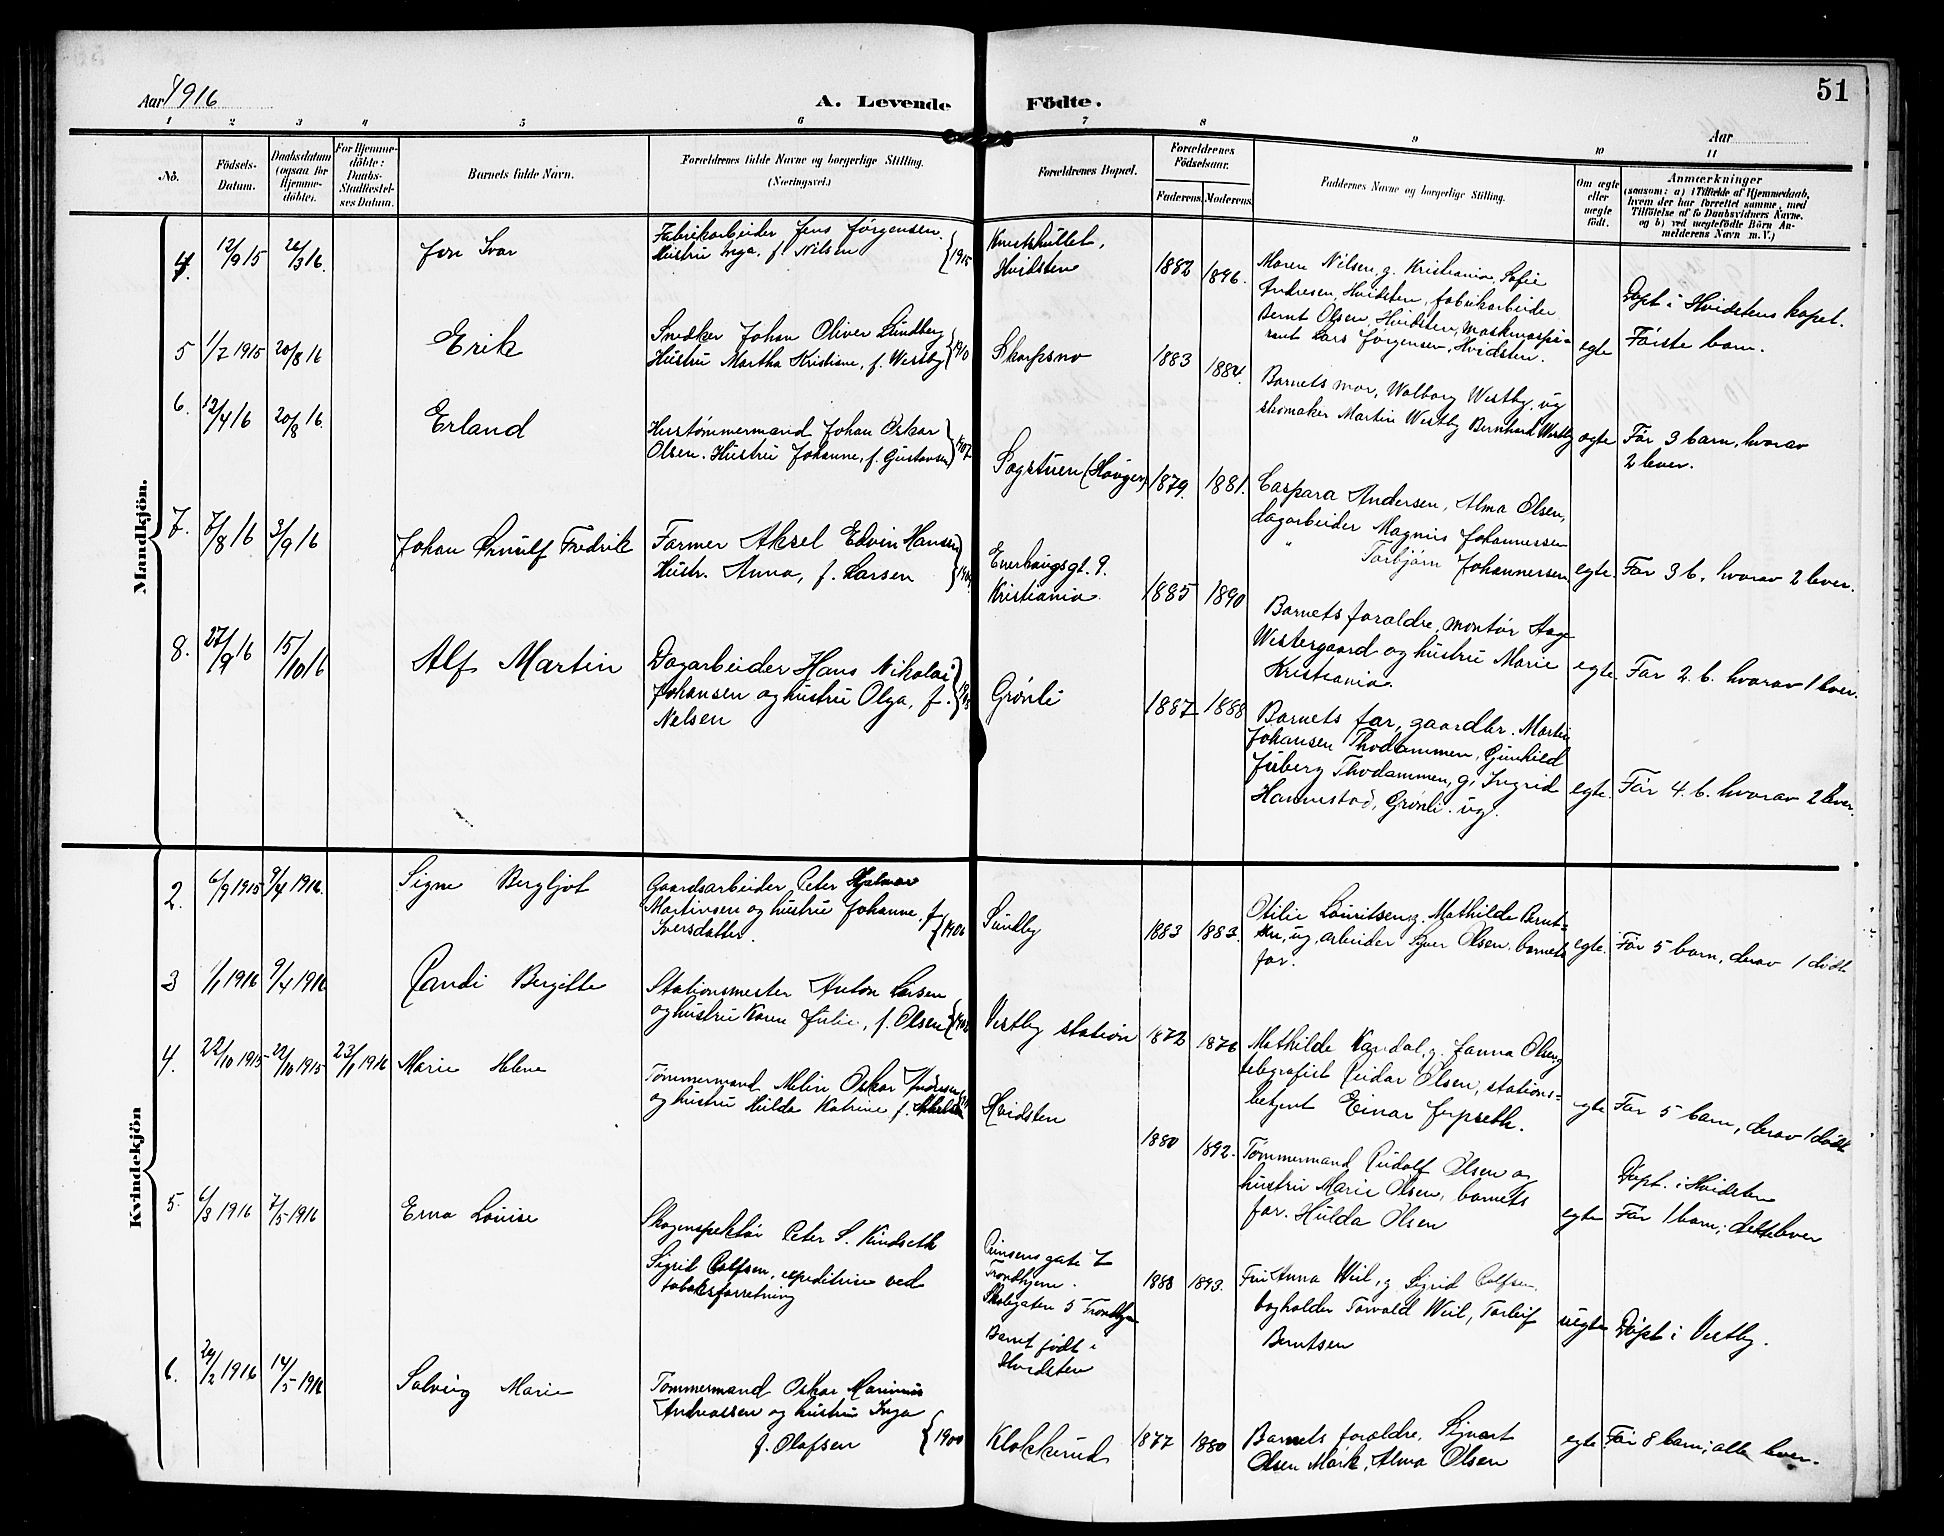 Aar 1916
A. Levende Födte.
51
Aar
1 2 3 4 5 6 7 8 9 10 11
Nö.
Födsels-
Datum.
Daabsdatum
(ogsaa for
Hjemme-
döbte).
For Hjemme-
döbte:
Daabs-
Stadfæstel-
ses Datum.
Barnets fulde Navn.
Forældrenes fulde Navne og borgerlige Stilling.
(Næringsvei.)
Forældrenes Bopæl.
Forældrenes
Födselsaar.
Faderens Moderens
Faddernes Navne og borgerlige Stilling.
Om ægte
eller
uægte
födt.
Anmærkninger
(saasom: a) i Tilfælde af Hjemmedaab,
hvem der har forrettet samme, med
Tilföielse af to Daabsvidners Navne.
og b) ved uægtefödte Börn An-
melderens Navn m. V.)
Mandkjön.
4.
12/9 15
26/3 16.
Jon Ivar
Fabrikarbeider Jens Jørgensen
Hustru Inga, f. Nilsen
Hvidsten
1882 1896.
Maren Nilsen, g. Kristiania, Sofie
Andresen, Hvidsten, fabrikarbeider
Bernt Olsen, Hvidsten, maskinaspi-
rant Lars Jørgensen, Hvidsten.
egte
Døpt i Hvidstens kapel.
Første barn.
5
1/7 1915
20/8 16
Erik
Snedker Johan Oliver Lundberg
Hustru Martha Kristiane, f. Westby
1910
Skarpsno
1883 1884.
Barnets mor, Walborg Westby, ug
skomaker Martin Westby Bernhard Westby
egte
Før 3 barn, hvorav
2 lever.
6.
12/4 16
20/8 16.
Erland
Hustømmermand Johan Oskar
Olsen. Hustru Johanne, f. Gustavsen
1907
Sagstuen (Haugen)
1879. 1881.
Caspara Andersen, Alma Olsen,
dagarbeider Magnus Johannessen
" Torbjørn Johannersen
egte.
Før 3 b. hvorav 2 lever.
7.
7/8 16
3/9 16
Johan Arnulf Fredrik
Farmer Aksel Edvin Hansen
Hustr. Anna, f. Larsen
Enerhaugsgt. 9.
Kristiania.
1885 1890
Barnets foraldre, montør Aage
Westergaard og hustru Marie
Kristiania.
egte
Før 2. b. hvorav 1 lever.
8.
27/9 16
15/10 16
Alf Martin
Dagarbeider Hans Nikolai
Johansen og hustru Olga, f.
Nelsen
Grønli
1887 1888
Barnets far, gaardbr. Martin
Johansen Thodammen, Gunhild
Juberg Thodammen, g, Ingrid
Hannestad, Grønli. ug.
egte.
Før 4. b. hvorav 2 lever.
Kvindekjön
2.
6/9 1915
9/4 1916.
Signe Bergljot
Gaardsarbeider Peter Hjalmar
Martinsen og hustru Johanne, f.
Iversdatter.
1906
Sundby
1883 1883.
Otilie Lauritsen, g. Mathilde Bernt-
sen, ug, arbeider Syver Olsen, barnets
far.
egte.
Før 5 barn, derav 1 dødt
3
1/1 1916
9/4 1916
Randi Bergitte
Stationsmester Anton Larsen
og hustru Karen Julie, f. Olsen
Vestby station
1872 1876
Mathilde Vandal, g. Janna Olsen, g
telegrafist Reidar Olsen, stations-
betjent Einar Jerpseth.
egte
Før 5 barn, derav 1 dødt
4.
22/10 1915
22/10 1915
23/1 1916
Marie Helene
Tømmermand Melin Oskar Andresen
og hustru Hulda Katrine f.
Hvidsten
1880 1892.
Tømmermand Rudolf Olsen og
hustru Marie Olsen, barnets
far. Hulda Olsen
egte
Døpt. i Hvidsten
Før 1 barn; dette lever
5.
6/3 1916
7/5 1916
Erna Louise
Skoginspektør Peter S. Kindseth
Sigrid Rolfsen, expeditrise ved
tobaksforretning
Prinsens gate 7
Trondhjem.
Skolegaten 5 Trondhjem
Barnet født i
Hvidsten
1888 1893.
Fru Anna Weil, g Sigrid Rolfsen
bogholder Torvald Weil, Torleif
Berntsen
uegte
Døpt i Vestby.
6.
29/2 1916
14/5 1916
Solveig Marie
Tømmermand Oskar Marinius
Andreassen og hustru Inga
f. Olafsen
1900
Klokkerud
1877 1880
Barnets forældre, Sigvart
Olsen Mørk, Alma Olsen
egte
Før 8 barn; alle lever.